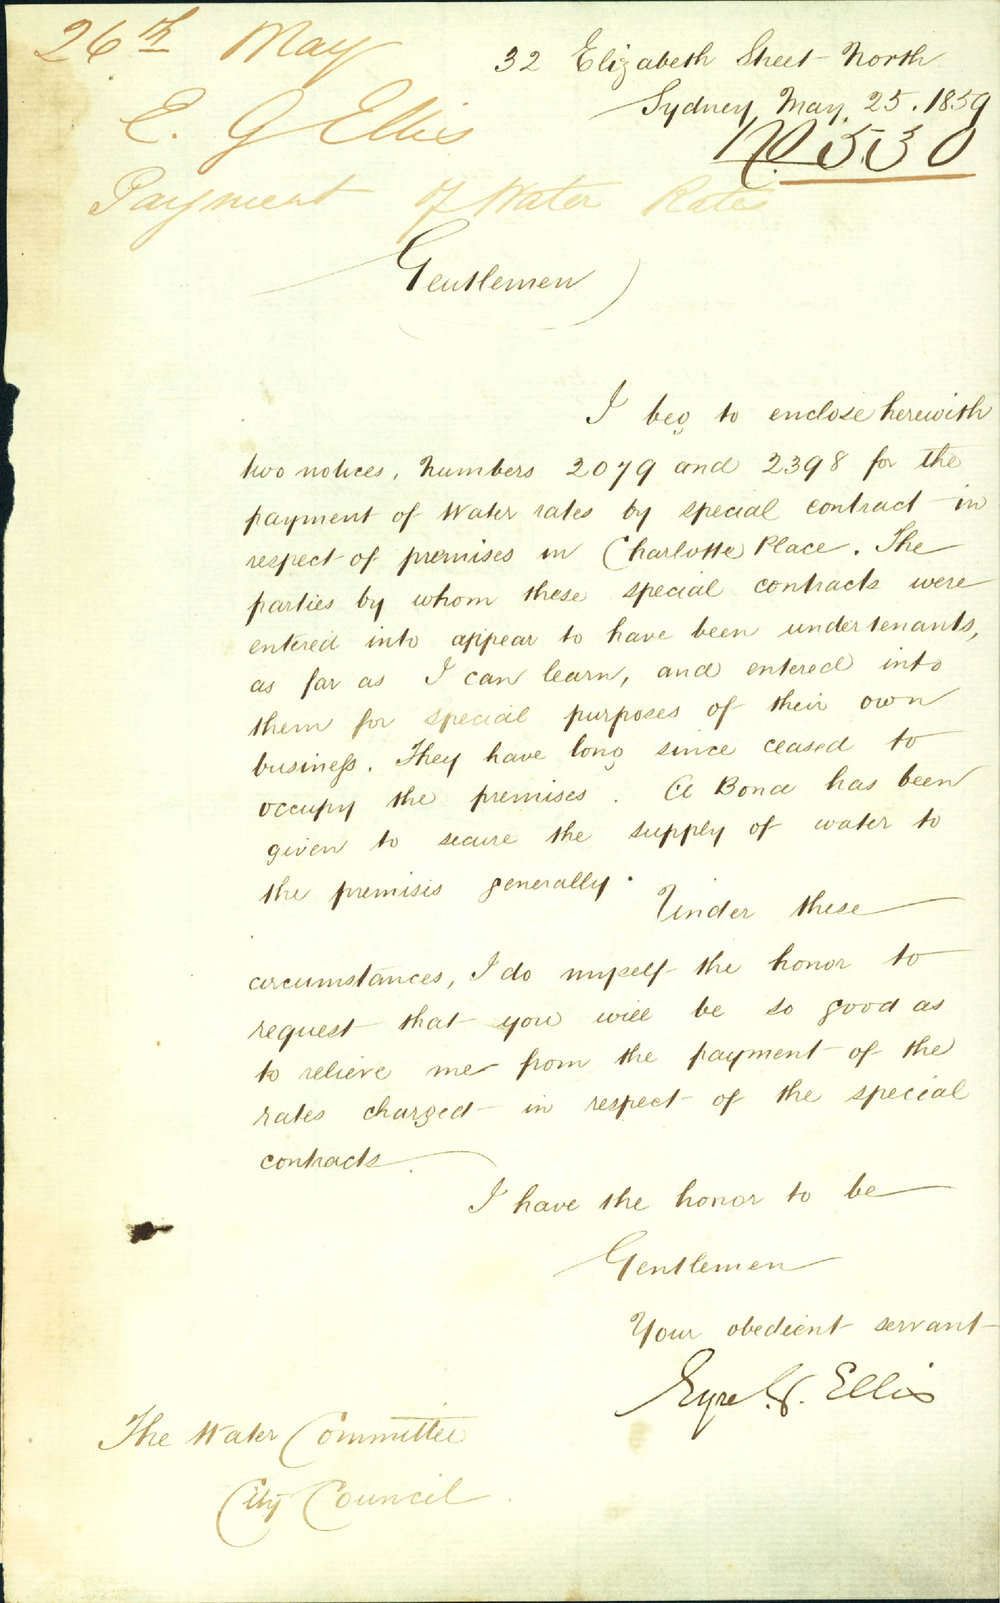 26th May
E. G Ellis
Payment of Water Rates
32 Elizabeth Street North
Sydney May. 25. 1859
No. 530
Gentlemen
I beg to enclose herewith
two notices, Numbers 2079 and 2398 for the
payment of Water rates by special contract in
respect of premises in Charlotte Place. The
parties by whom these special contracts were
entered into appear to have been undertenants,
as far as I can learn, and entered into
them for special purposes of their own
business. They have long since ceased to
occupy the premises. A Bond has been
given to secure the supply of water to
the premises generally.
Under these
circumstances, I do myself the honor to
request that you will be so good as
to relieve me from the payment of the
rates charged in respect of the special
contracts.
I have the honor to be
Gentlemen
Your obedient servant
Eyre G. Ellis
The Water Committee
City Council.